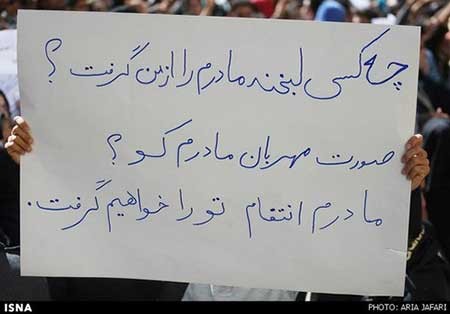 چه کسی لبخند مادرم را از من گرفت؟
صورت مهربان مادرم کو؟
مادرم انتقام تو را خواهیم گرفت.
ISNA
PHOTO: ARIA JAFARI